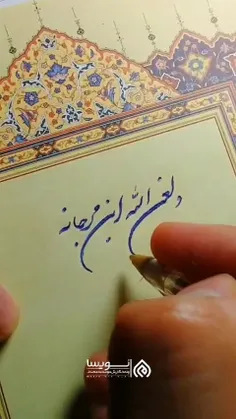 ولعن الله ابن مرجانه
انویسا